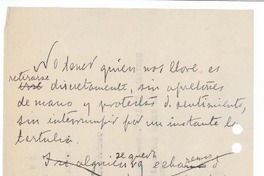 No tener quien nos llore es
retirarse
discretamente, sin apretones
de mano y protestas d. sentimiento,
sin interrumpir por un instante la
tertulia.
se queda
I si alguien